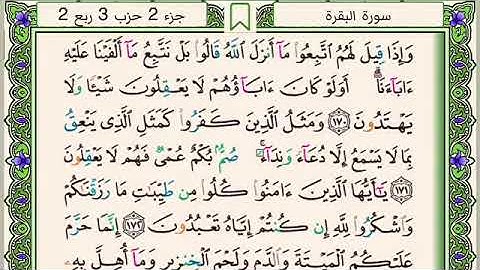 سورة البقرة
جزء 2 حزب 3 ربع 2
وَإِذَا قِيلَ لَهُمُ ٱتَّبِعُوا۟ مَآ أَنزَلَ ٱللَّهُ قَالُوا۟ بَلْ نَتَّبِعُ مَآ أَلْفَيْنَا عَلَيْهِ
ءَابَآءَنَآ ۗ أَوَلَوْ كَانَ ءَابَآؤُهُمْ لَا يَعْقِلُونَ شَيْـًٔا وَلَا
يَهْتَدُونَ ١٧٠ وَمَثَلُ ٱلَّذِينَ كَفَرُوا۟ كَمَثَلِ ٱلَّذِى يَنْعِقُ
بِمَا لَا يَسْمَعُ إِلَّا دُعَآءً وَنِدَآءً ۚ صُمٌّۢ بُكْمٌ عُمْىٌ فَهُمْ لَا يَعْقِلُونَ
١٧١ يَـٰٓأَيُّهَا ٱلَّذِينَ ءَامَنُوا۟ كُلُوا۟ مِن طَيِّبَـٰتِ مَا رَزَقْنَـٰكُمْ
وَٱشْكُرُوا۟ لِلَّهِ إِن كُنتُمْ إِيَّاهُ تَعْبُدُونَ ١٧٢ إِنَّمَا حَرَّمَ
عَلَيْكُمُ ٱلْمَيْتَةَ وَٱلدَّمَ وَلَحْمَ ٱلْخِنزِيرِ وَمَآ أُهِلَّ بِهِۦ